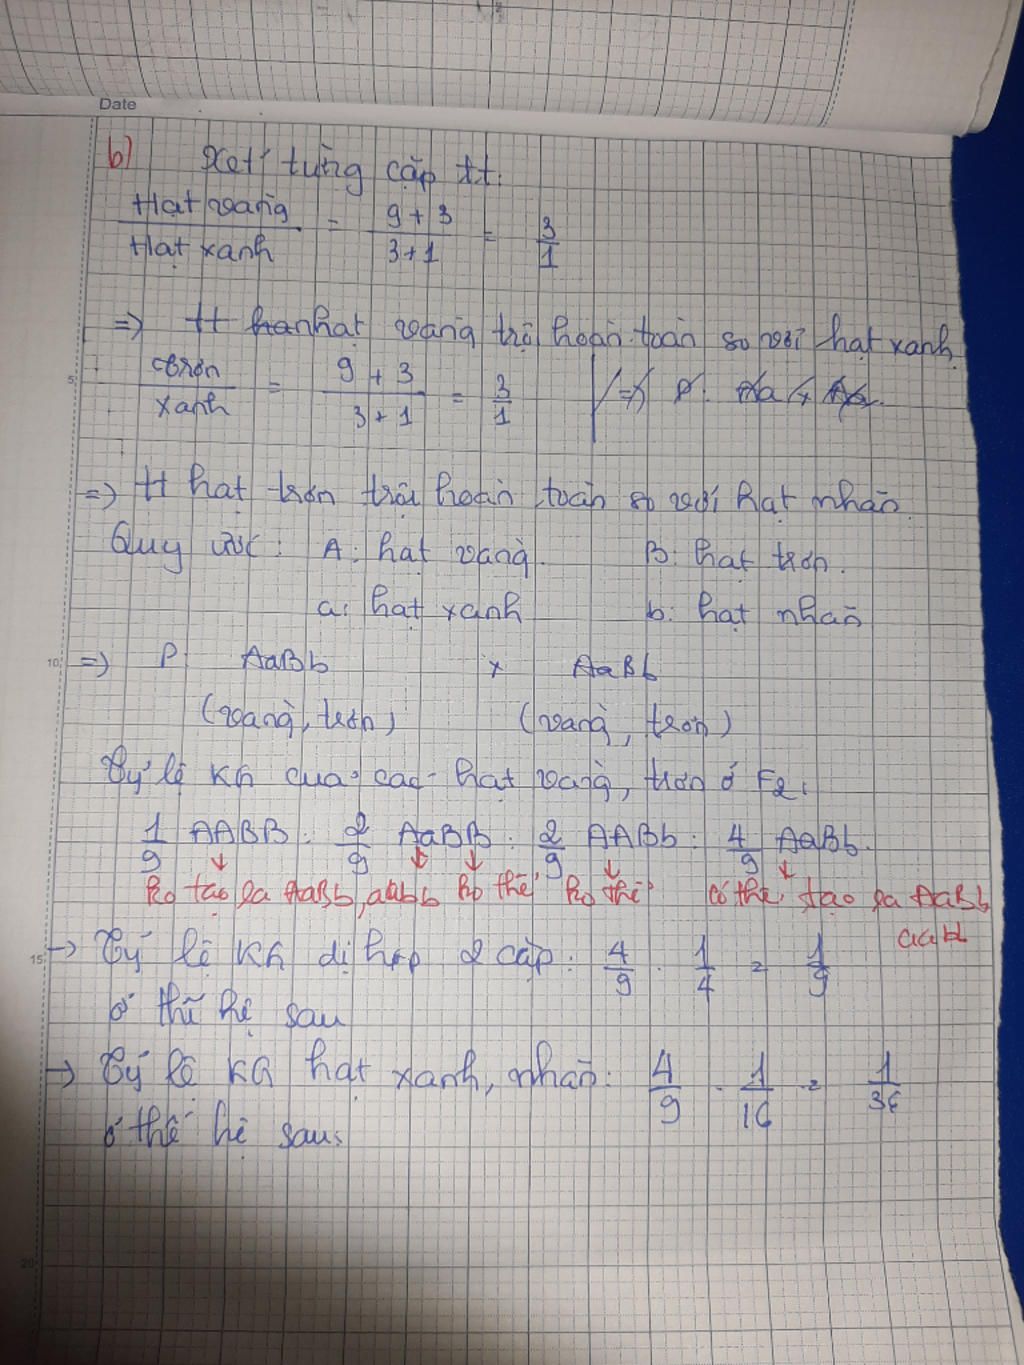 Date
b) Xét từng cặp tt.
Hạt vàng / Hạt xanh = 9 + 3 / 3 + 1 = 3 / 1
=> tt hạt vàng trội hoàn toàn so với hạt xanh
5
trơn / xanh = 9 + 3 / 3 + 1 = 3 / 1
=> tt hạt trơn trội hoàn toàn so với hạt nhăn.
Quy ước: A: hạt vàng. B: hạt trơn.
a: hạt xanh b: hạt nhăn
10 => P: AaBb x AaBb
(vàng, trơn) (vàng, trơn)
Tỷ lệ KG của các hạt vàng, trơn ở F2:
1/9 AABB : 2/9 AaBB : 2/9 AABb : 4/9 AaBb.
Ko tạo ra AaBb, aabb Ko thể Ko thể có thể tạo ra AaBb
aabb
15 → Tỷ lệ KG dị hợp 2 cặp: 4/9 . 1/4 = 1/9
ở thế hệ sau
→ Tỷ lệ KG hạt xanh, nhăn: 4/9 . 1/16 = 1/36
ở thế hệ sau:
20